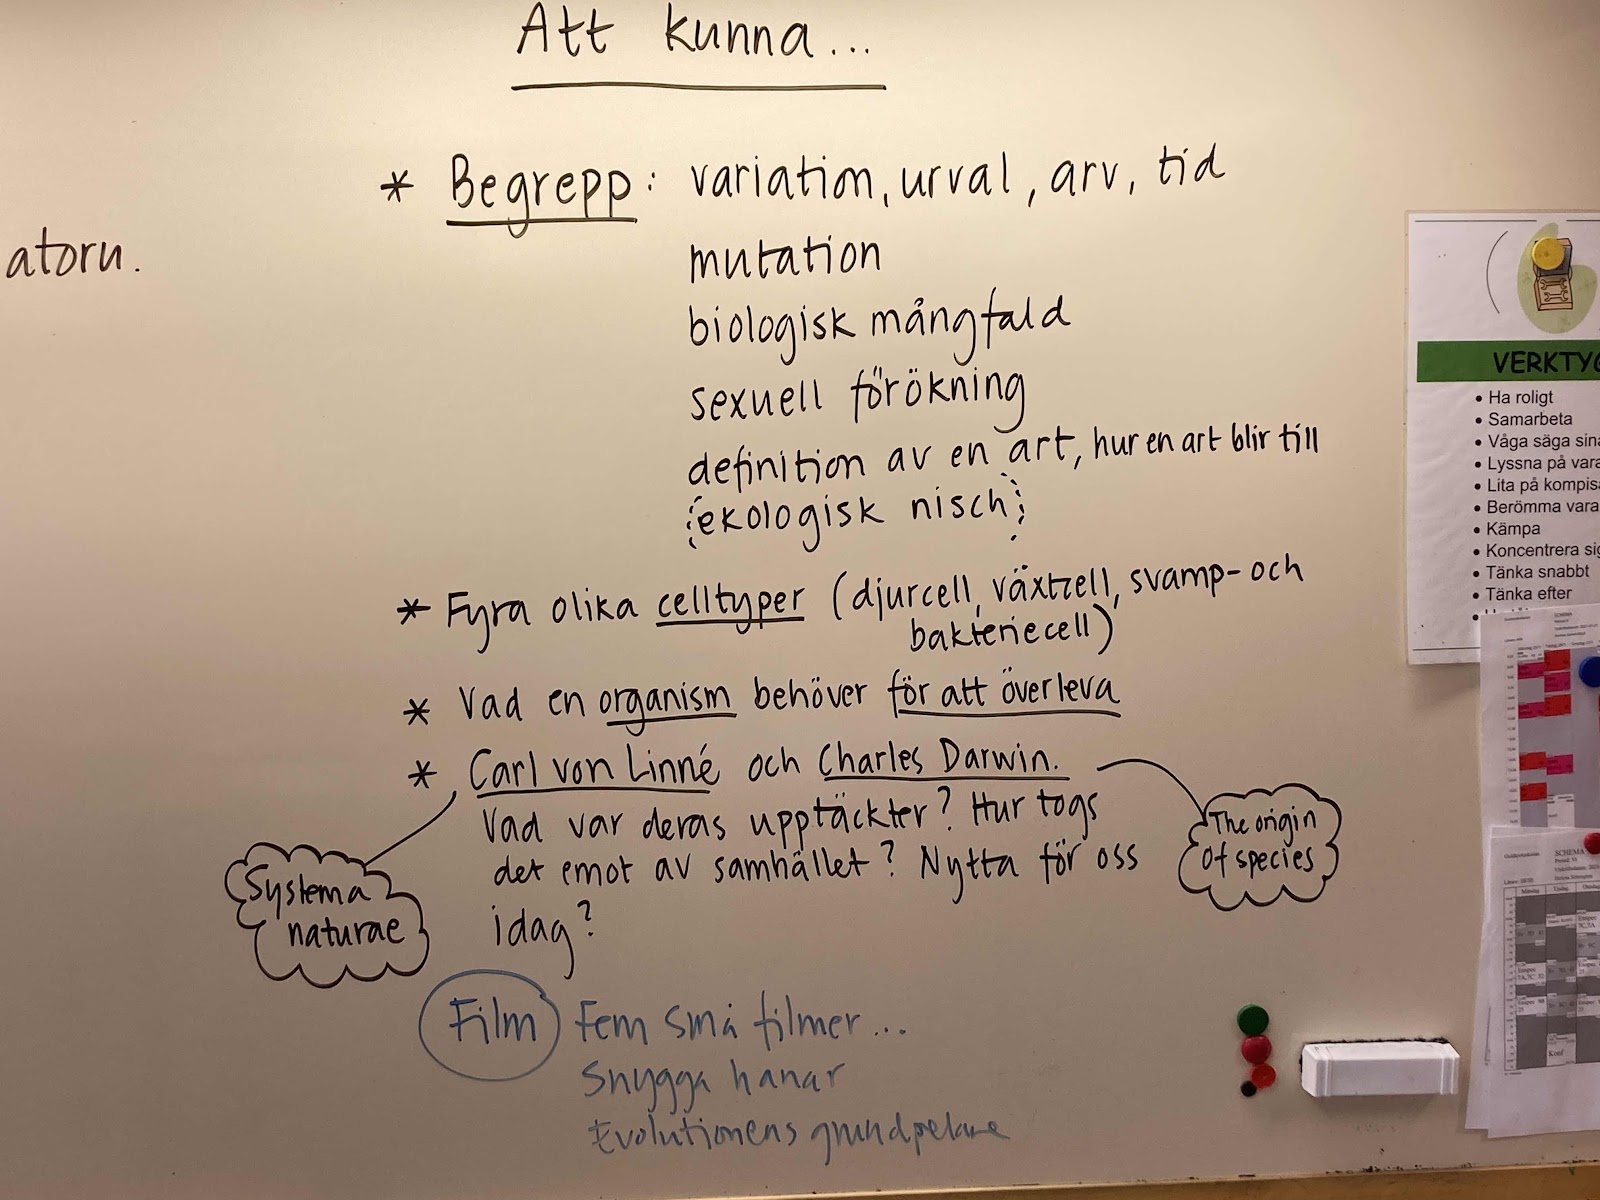 Att kunna...
* Begrepp: variation, urval, arv, tid
mutation
biologisk mångfald
sexuell förökning
definition av en art, hur en art blir till
ekologisk nisch
* Fyra olika celltyper (djurcell, växtcell, svamp- och
bakteriecell)
* Vad en organism behöver för att överleva
* Carl von Linné och Charles Darwin.
Vad var deras upptäckter? Hur togs
det emot av samhället? Nytta för oss
idag?
Systema
naturae
The origin
of species
Film Fem små filmer...
Snygga hanar
Evolutionens grundpelare
atoru.
VERKTYG
• Ha roligt
• Samarbeta
• Våga säga sina
• Lyssna på vara
• Lita på kompisa
• Berömma vara
• Kämpa
• Koncentrera sig
• Tänka snabbt
• Tänka efter
SCHEMA